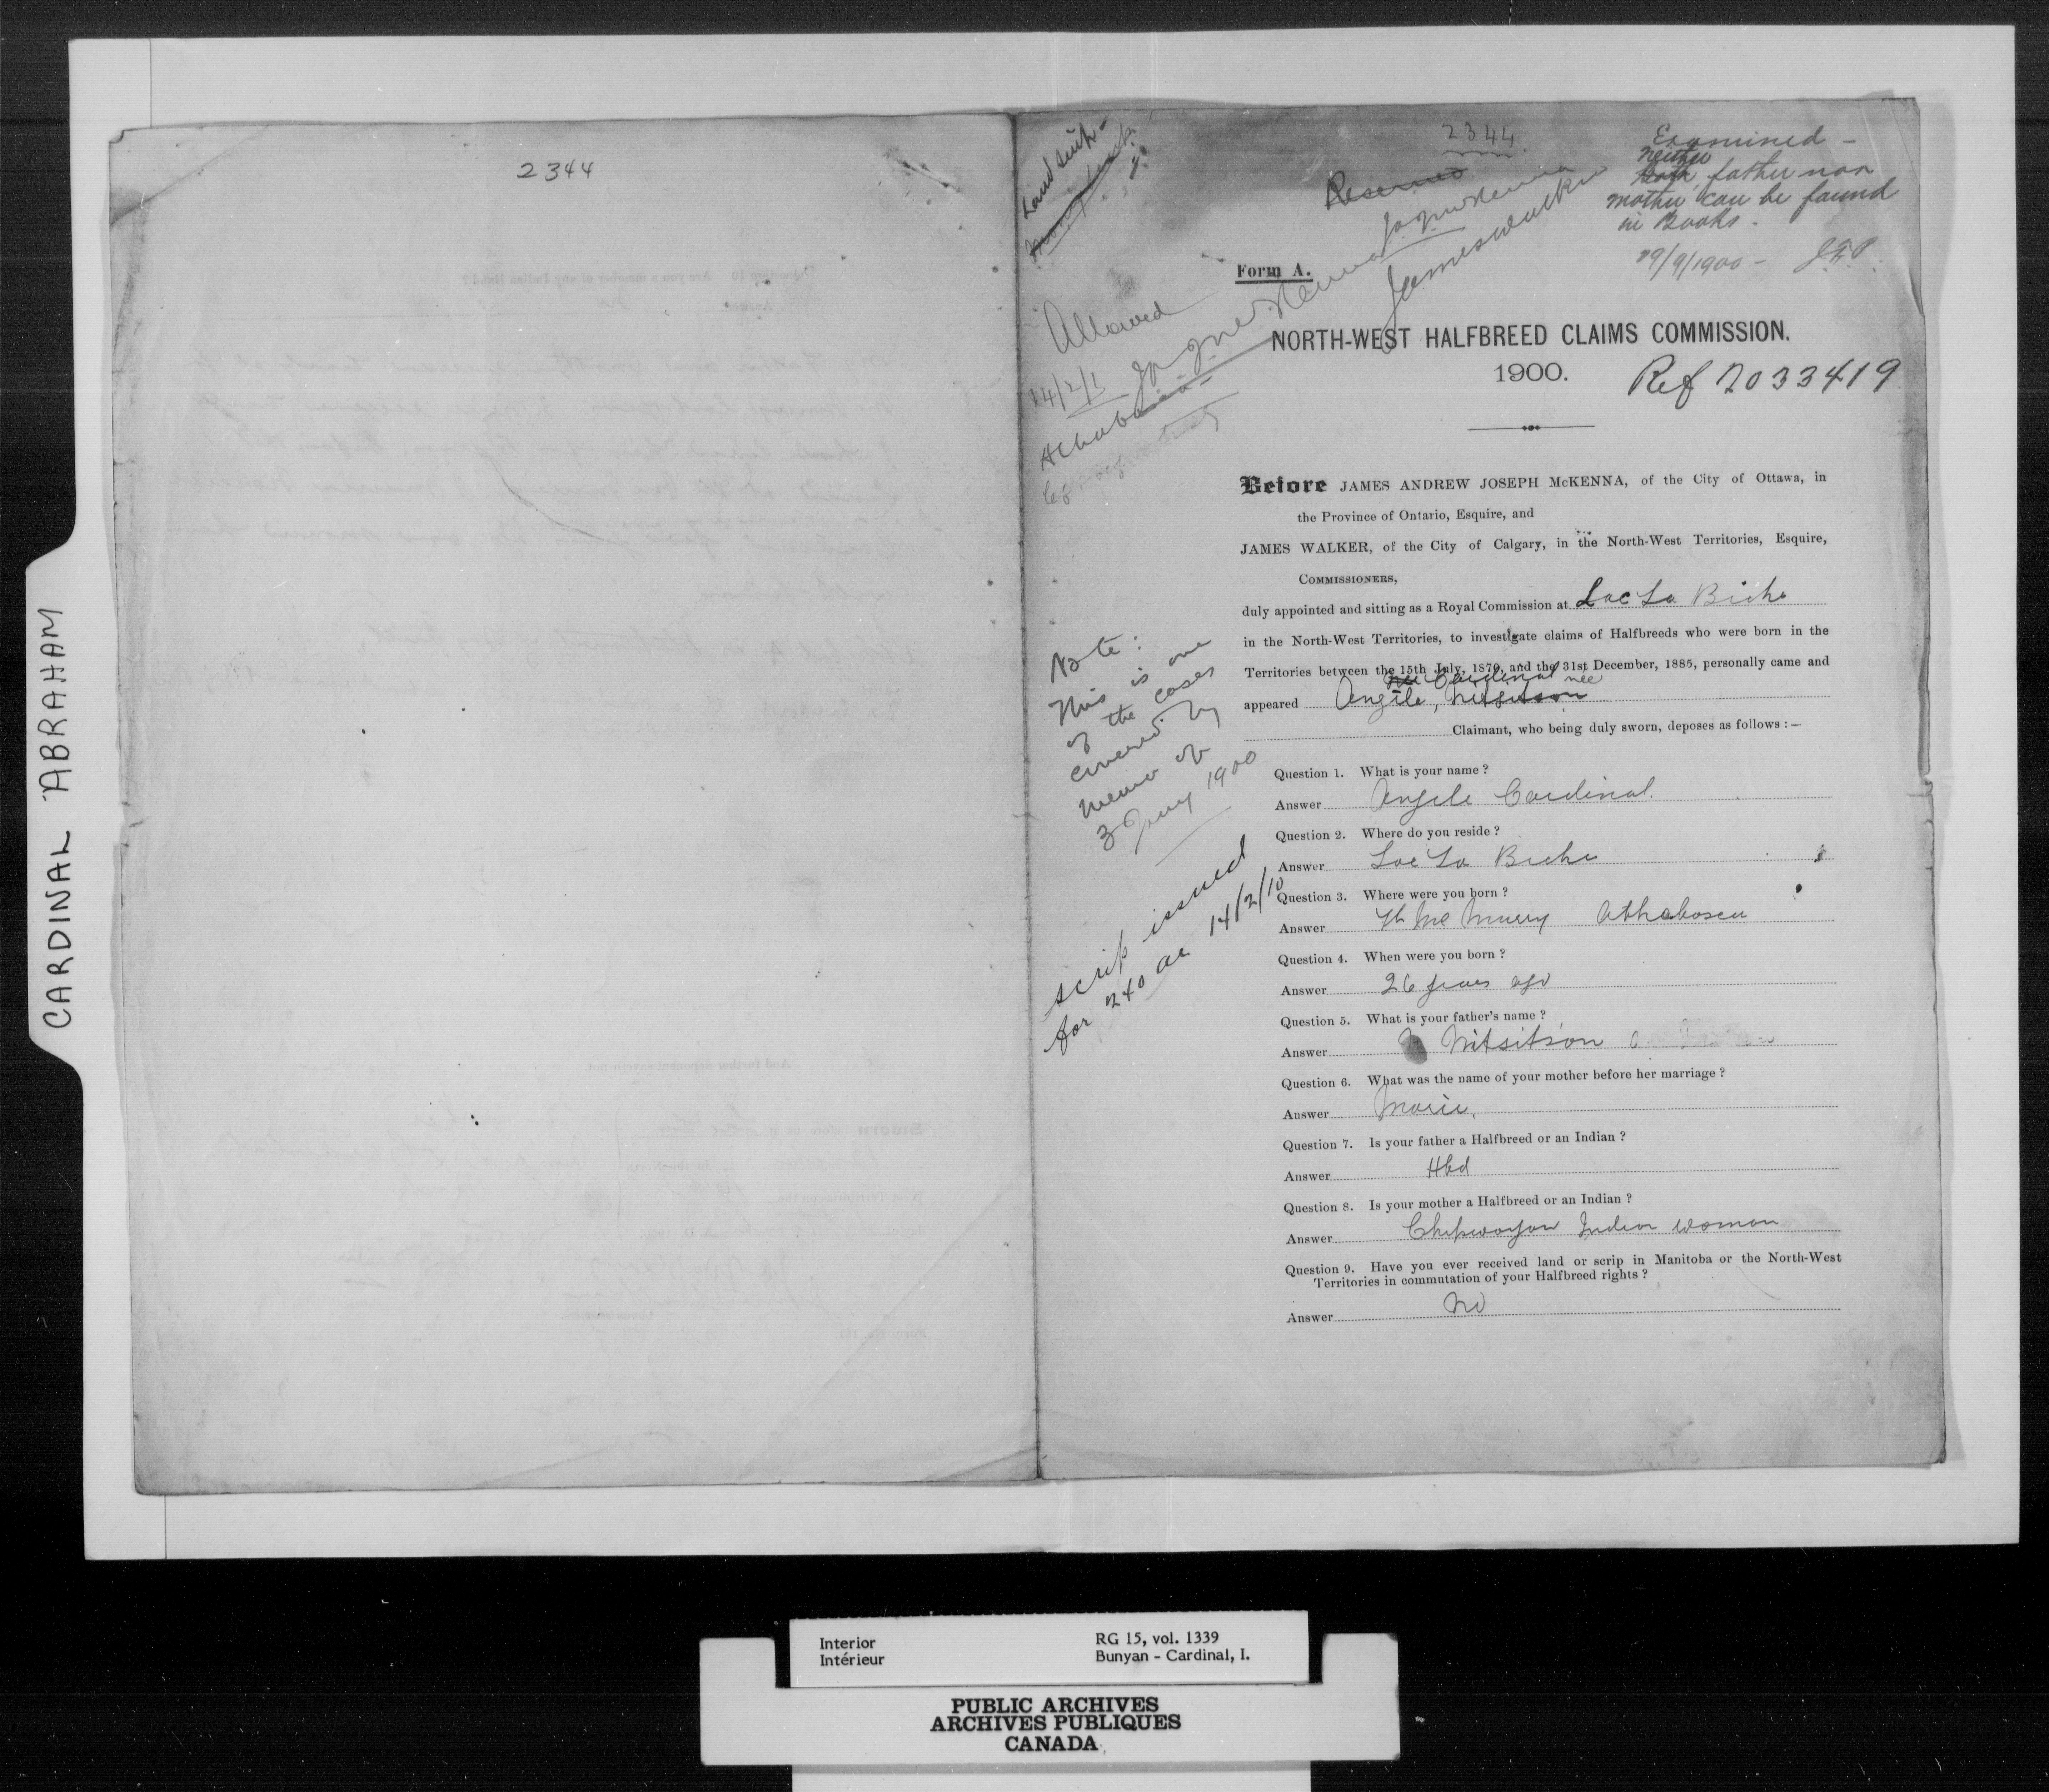 CARDINAL ABRAHAM
2344
Land scrip -
2344
Reserved
J A J McKenna
James Walker
Examined -
neither
Both father nor
mother can be found
in Books.
29/9/1900 -
Form A.
Allowed
J A J McKenna
14/2/1
Athabasca -
NORTH-WEST HALFBREED CLAIMS COMMISSION.
1900.
Ref 2033419
Before JAMES ANDREW JOSEPH McKENNA, of the City of Ottawa, in
the Province of Ontario, Esquire, and
JAMES WALKER, of the City of Calgary, in the North-West Territories, Esquire,
COMMISSIONERS,
duly appointed and sitting as a Royal Commission at Lac La Biche
in the North-West Territories, to investigate claims of Halfbreeds who were born in the
Territories between the 15th July, 1870, and the 31st December, 1885, personally came and
nee Cardinal nee
appeared Angele, Nitsitson
Claimant, who being duly sworn, deposes as follows :—
Note:
This is one
of the cases
covered by
memo of
3 Jany 1900
scrip issued
for 240 ac 14/2/10
Question 1. What is your name ?
Answer Angele Cardinal.
Question 2. Where do you reside ?
Answer Lac La Biche
Question 3. Where were you born ?
Answer Ft Mc Murry Athabasca
Question 4. When were you born ?
Answer 26 years ago
Question 5. What is your father's name ?
Answer Nitsitson
Question 6. What was the name of your mother before her marriage ?
Answer Marie,
Question 7. Is your father a Halfbreed or an Indian ?
Answer Hbd
Question 8. Is your mother a Halfbreed or an Indian ?
Answer Chipwayan Indian woman
Question 9. Have you ever received land or scrip in Manitoba or the North-West
Territories in commutation of your Halfbreed rights ?
Answer No
Interior
Intérieur
RG 15, vol. 1339
Bunyan - Cardinal, I.
PUBLIC ARCHIVES
ARCHIVES PUBLIQUES
CANADA